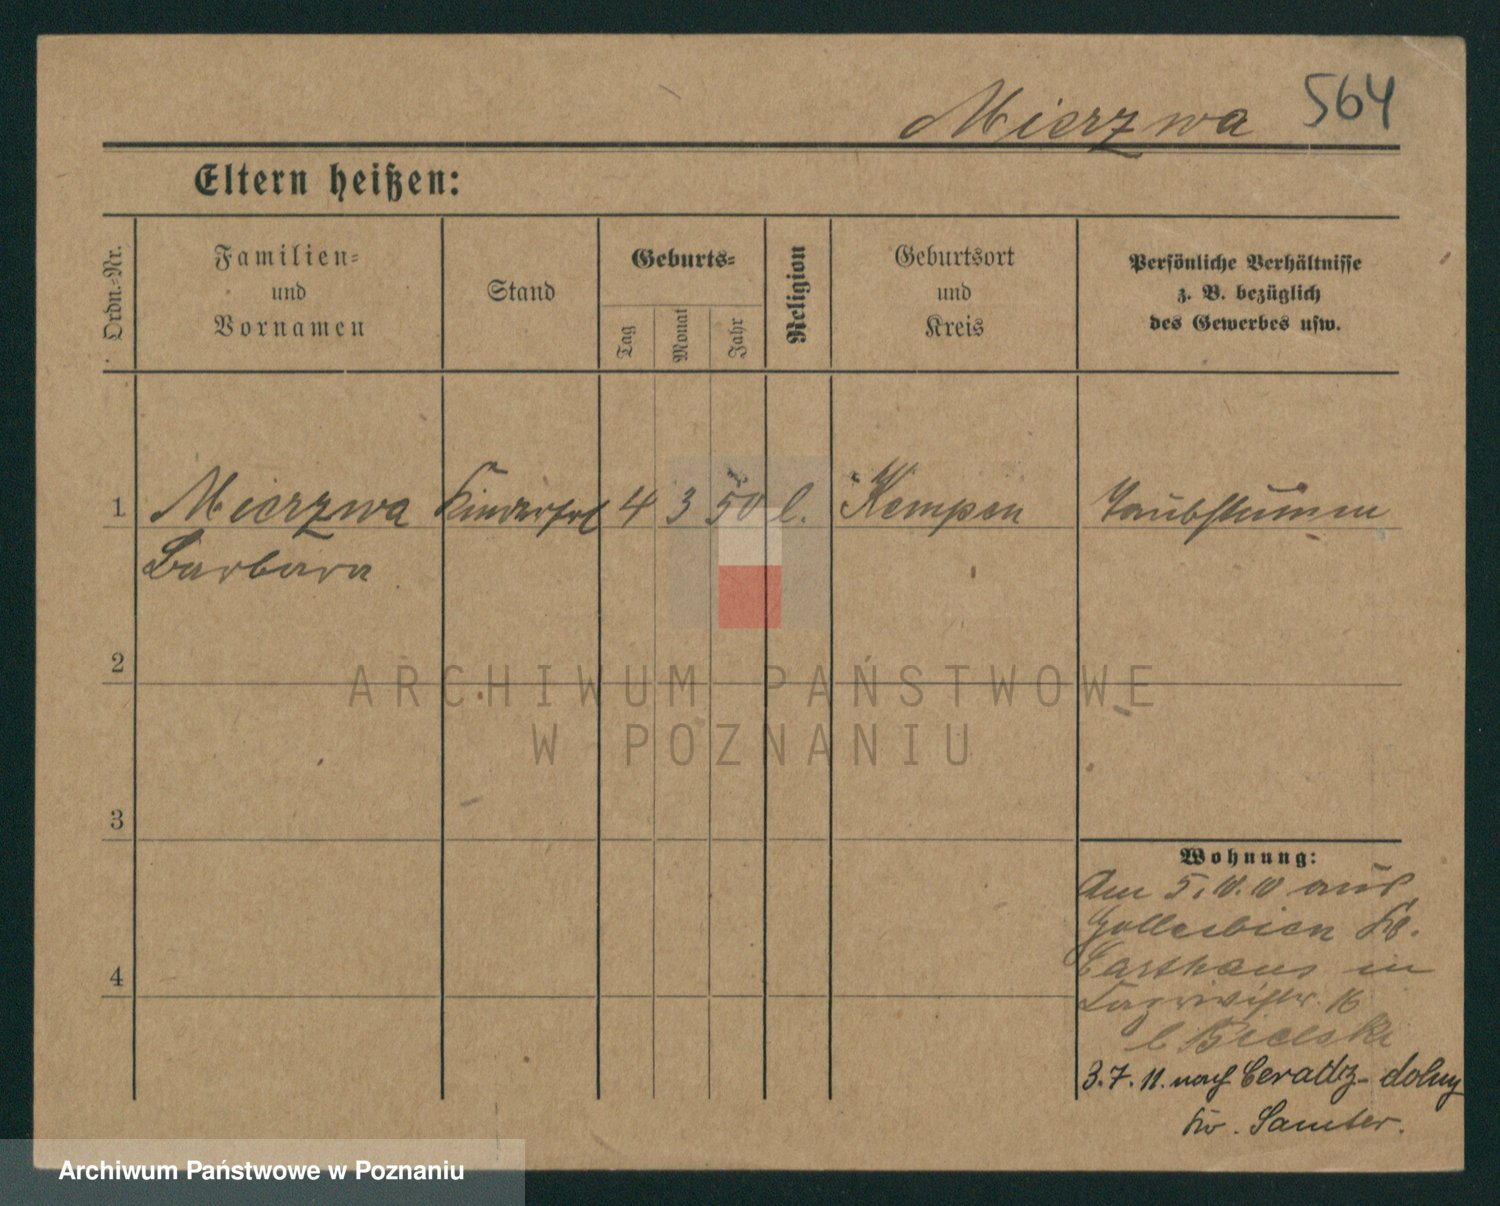 Mierzwa 564
Eltern heißen:
Ordn.-Nr.
Familien-
und
Vornamen
Stand
Geburts-
Tag
Monat
Jahr
Religion
Geburtsort
und
Kreis
Persönliche Verhältnisse
z. B. bezüglich
des Gewerbes usw.
1 Mierzwa Kinderfrl 4 3 50 l. Kempen Taubstumm
Barbara
2
3
4
Wohnung:
Am 5.10.10 aus
Kr.
Carthaus in
16
b Bielski
3.7.11. nach Ceradz-dolny
Kr. Samter.
ARCHIWUM PAŃSTWOWE
W POZNANIU
Archiwum Państwowe w Poznaniu